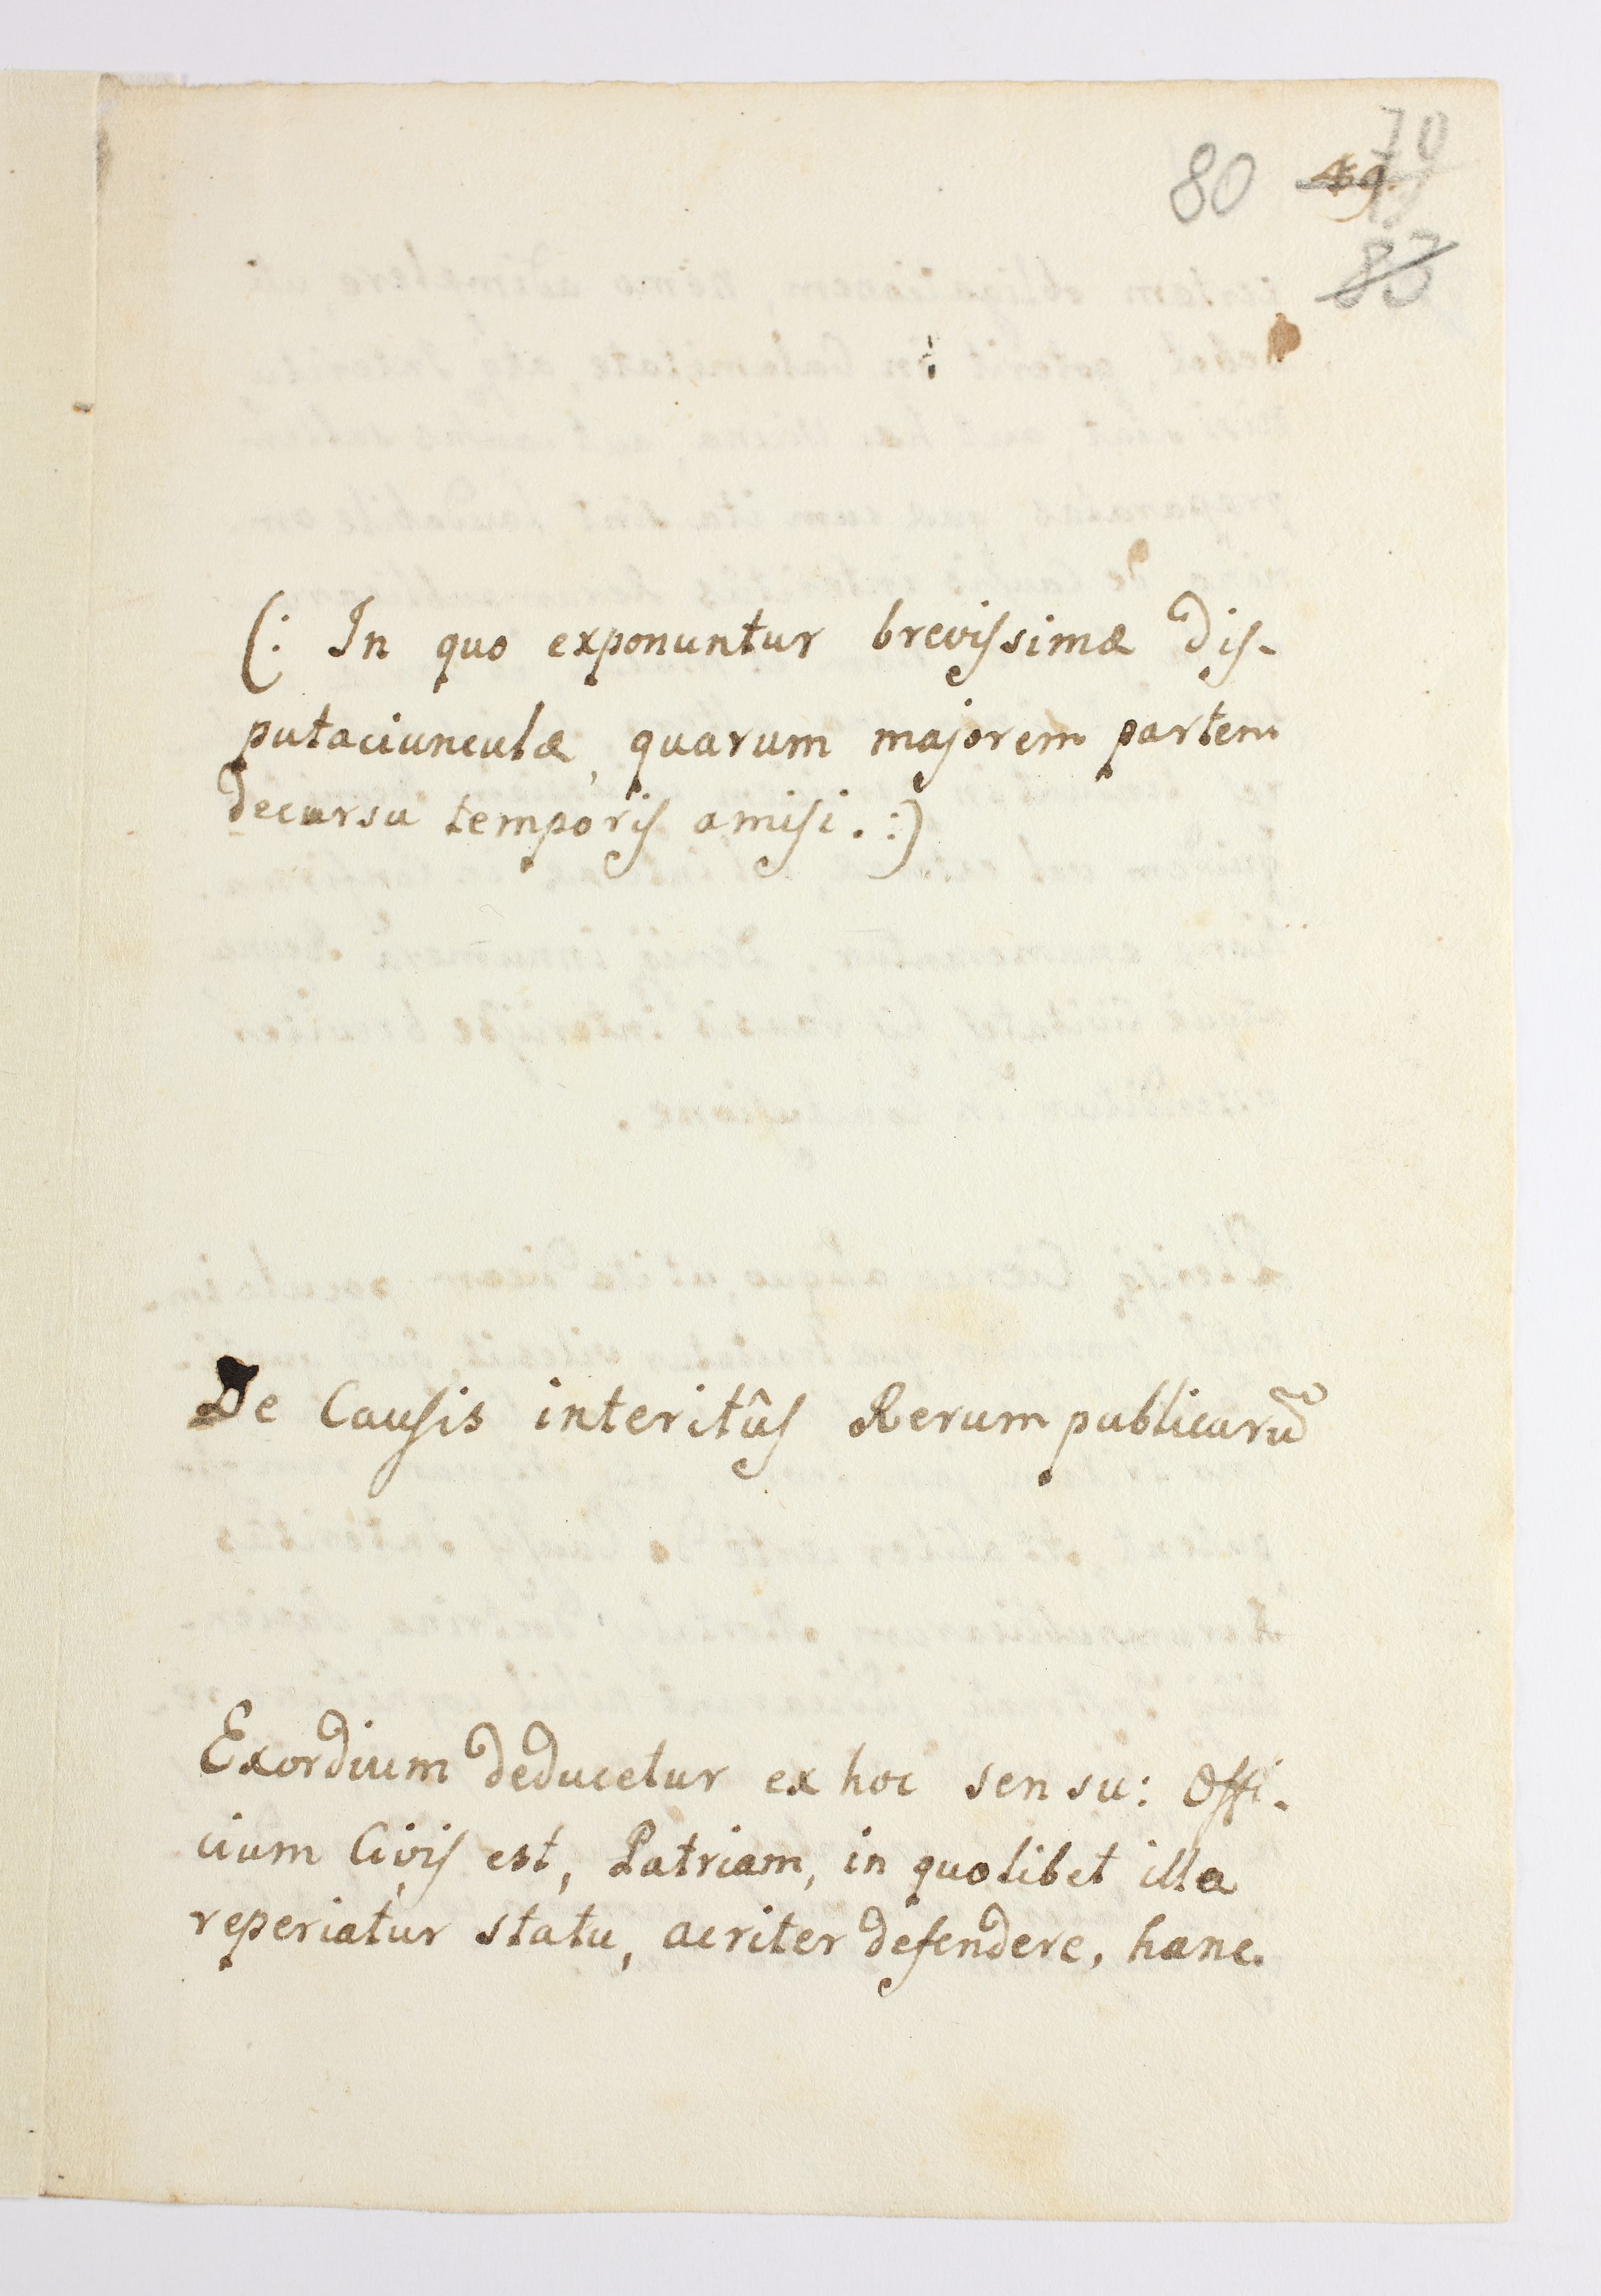 80
83
(: In quo exponuntur brevissimæ dis-
putaciunculæ, quarum majorem partem
decursu temporis amisi. :)
De Causis interitûs Rerum publicarũ
Exordium deducetur ex hoc sensu: Offi-
cium Civis est, Patriam, in quolibet illa
reperiatur statu, acriter defendere, hanc.